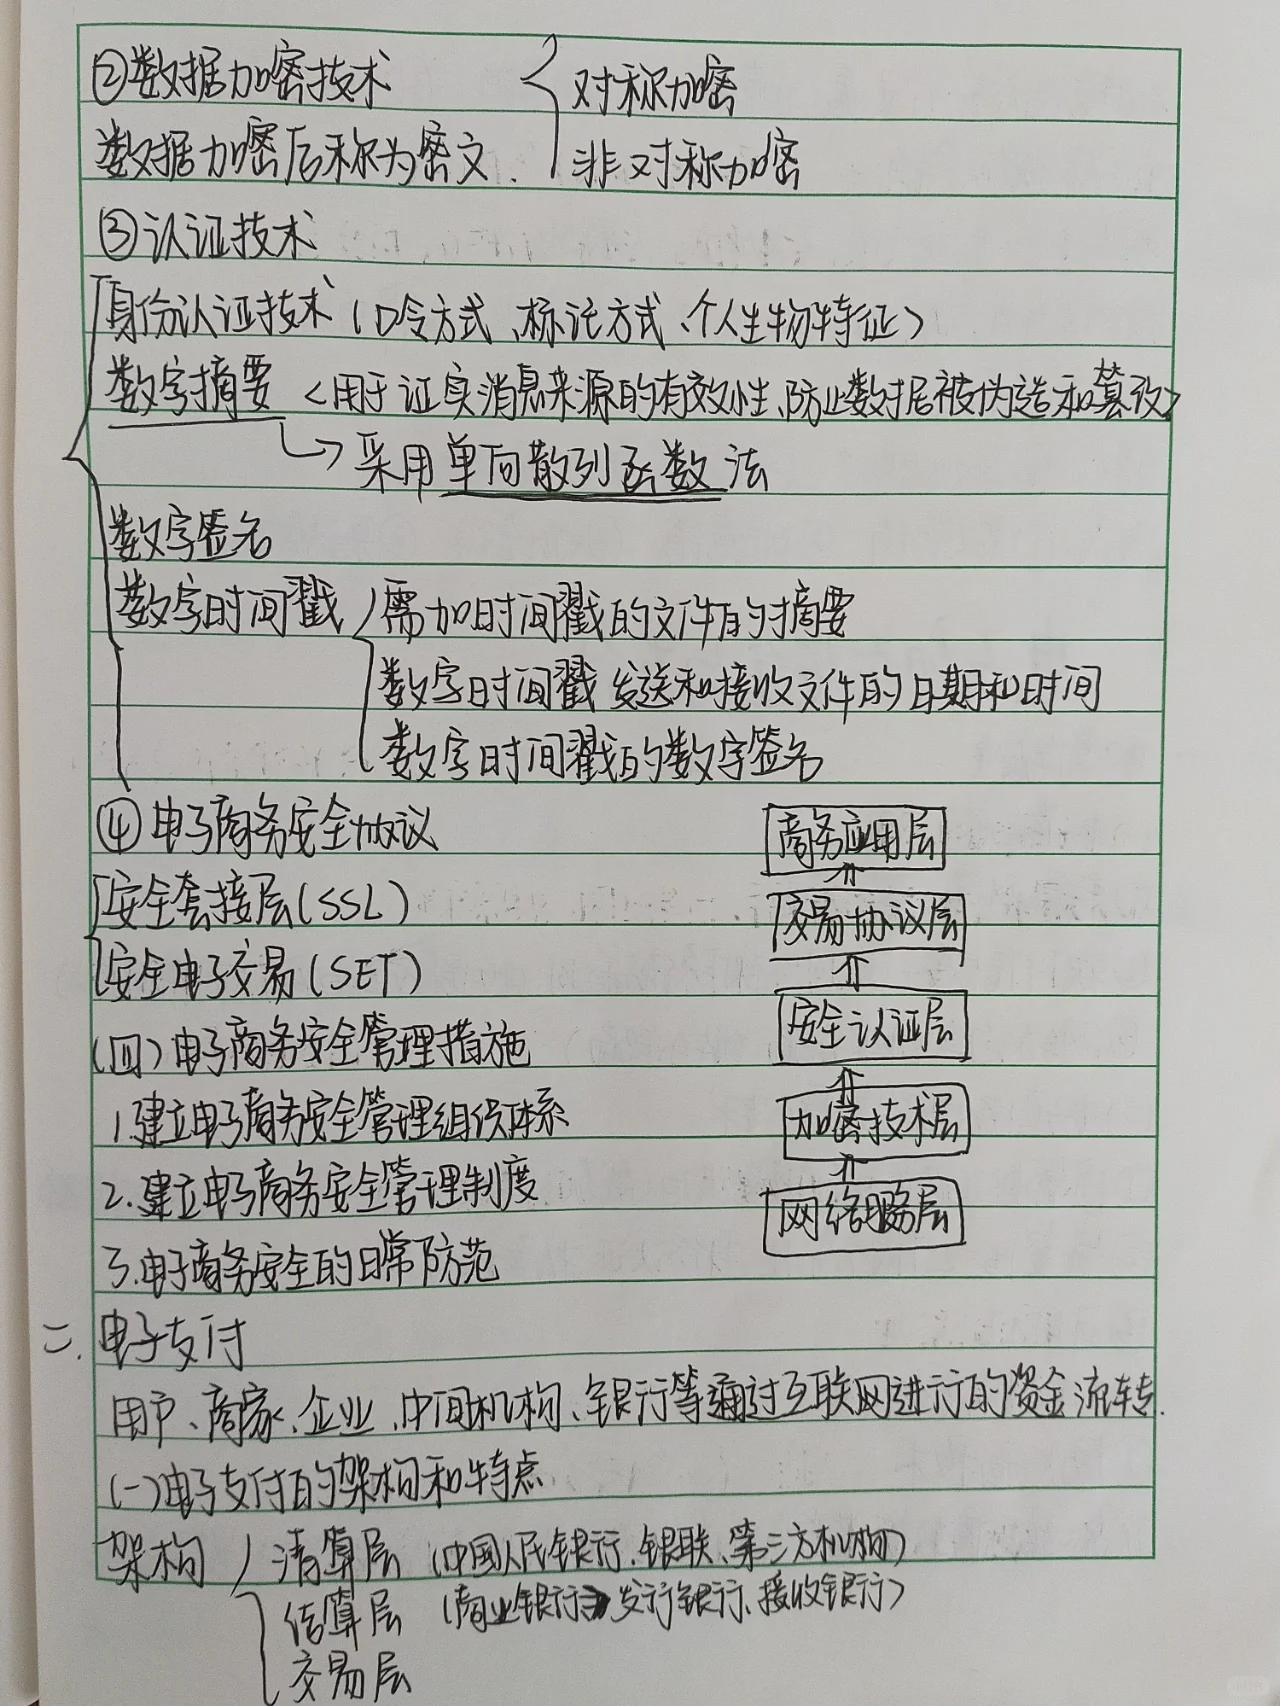 ②数据加密技术 对称加密
数据加密后称为密文. 非对称加密
③认证技术
身份认证技术(口令方式、标记方式、个人生物特征)
数字摘要<用于证实消息来源的有效性、防止数据被伪造和篡改>
→采用单向散列函数法
数字签名
数字时间戳 需加时间戳的文件的摘要
数字时间戳发送和接收文件的日期和时间
数字时间戳的数字签名
④电子商务安全协议
安全套接层(SSL)
安全电子交易(SET)
(四)电子商务安全管理措施
1.建立电子商务安全管理组织体系
2.建立电子商务安全管理制度
3.电子商务安全的日常防范
商务应用层
交易协议层
安全认证层
加密技术层
网络服务层
二.电子支付
用户、商家、企业、中间机构、银行等通过互联网进行的资金流转.
(一)电子支付的架构和特点
架构 清算层(中国人民银行、银联、第三方机构)
结算层(商业银行→发行银行、接收银行)
交易层